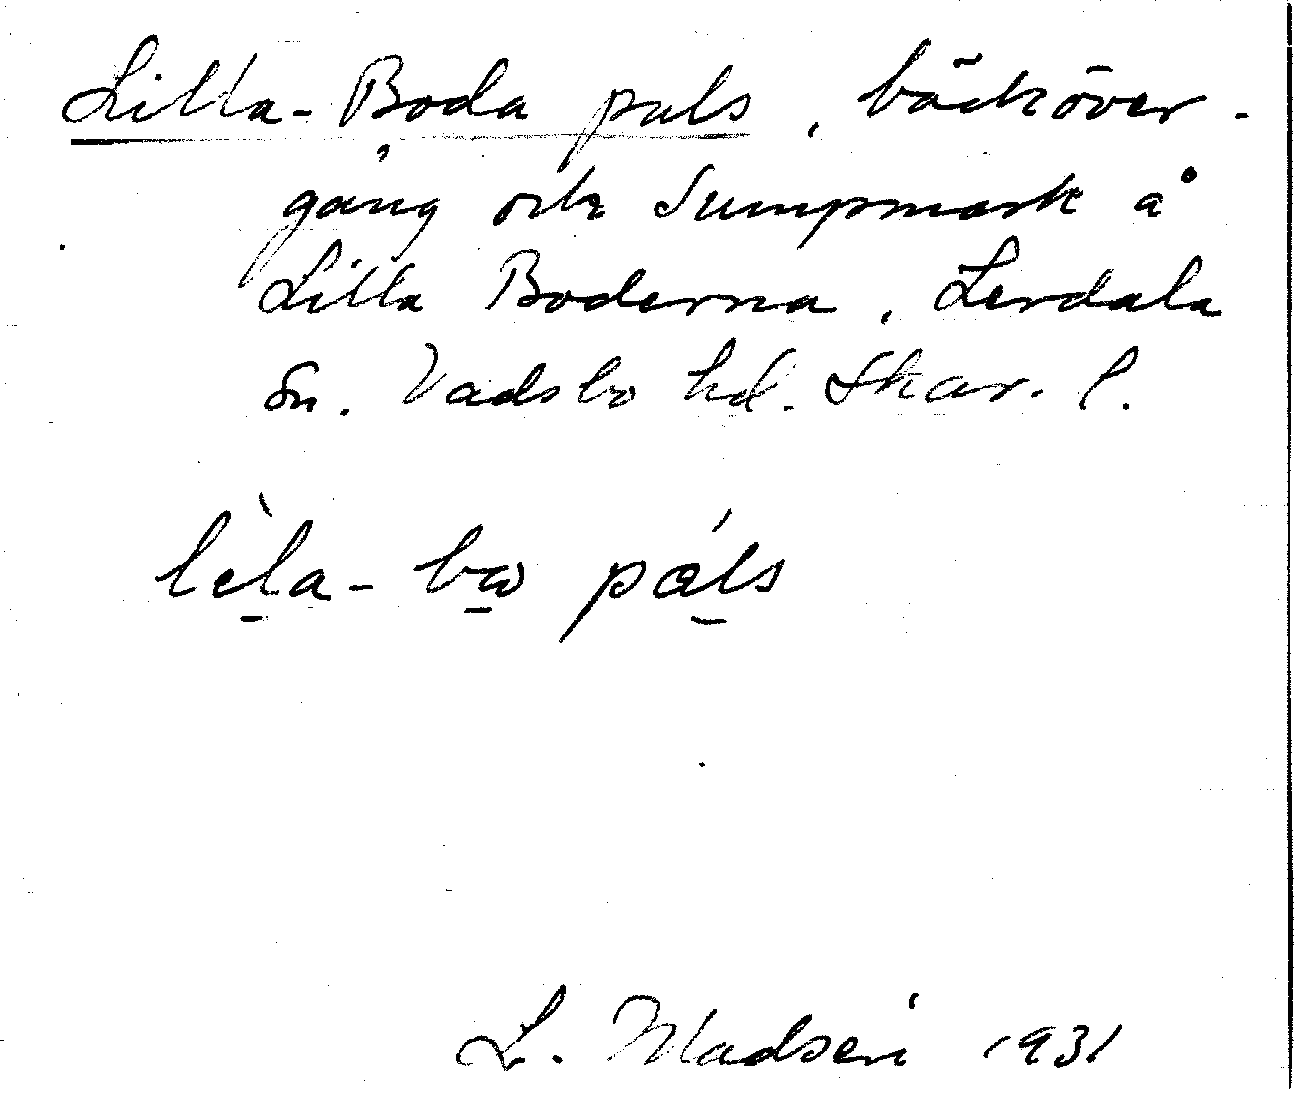 Lilla-Boda puls, bäcköver-
gång och sumpmark å
Lilla Boderna, Lerdala
sn. Vadsbo hd. Skar. l.
lèla-bω
L. Madsén 1931